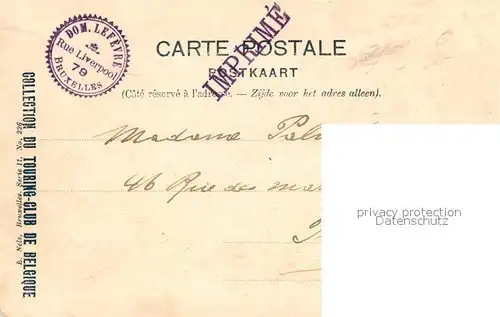 DOM. LEFÈVRE
Rue Liverpool
79
BRUXELLES
IMPRIMÉ
CARTE POSTALE
POSTKAART
(Côté réservé à l'adresse. — Zijde voor het adres alleen).
COLLECTION DU TOURING-CLUB DE BELGIQUE
E. Nels, Bruxelles. Serie 11. No. 226
Madame
46 Rue des
privacy protection
Datenschutz